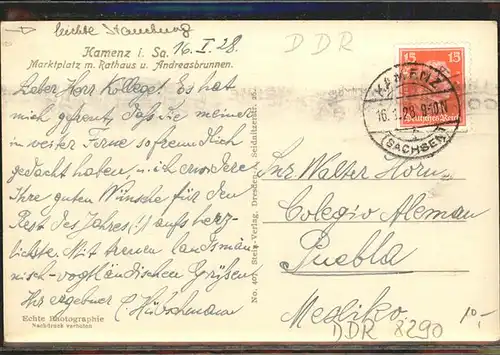 leichte Stauchung
DDR
Kamenz i. Sa. 16. I. 28.
Marktplatz m. Rathaus u. Andreasbrunnen.
Lieber Herr Kollege! Es hat
mich gefreut, daß Sie meiner
in weiter Ferne so freundlich
gedacht haben, u. ich erwidere
Ihre guten Wünsche für den
Rest des Jahres (!) aufs herz-
lichste. Mit treuen landsmän-
nisch-vogtländischen Grüßen
Ihr ergebner
Echte Photographie
Nachdruck verboten
No. 407 Stein-Verlag, Dresden
15 15
Deutsches Reich
KAMENZ
16.1.28
(SACHSEN)
Snr. Walter Horn
Colegio Aleman
Puebla
Mexiko.
10,-
DDR 8290